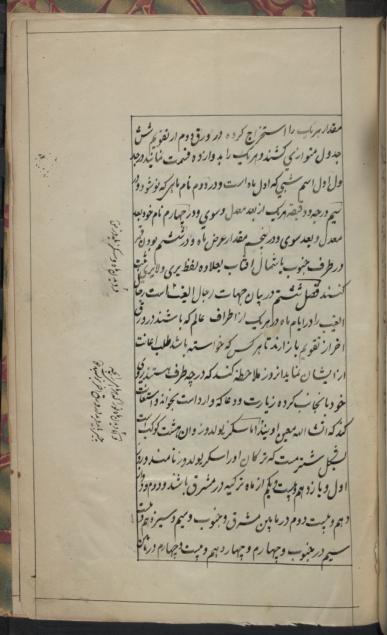 مقدار هر یک را استخراج کرده در ورق دوم از تقویم شش
جدول متوازی کشند و هر یک را بدوازده قسمت نمایند و جد
ول اول اسم شبی که اول ماه است و در دوم نام ماهی که نو شود و در
سیم درجه و دقیقه هر یک از بعد معدل و سوی و در چهارم نام خود بعد
معدل و بعد سوی و در پنجم مقدار عرض ماه و در ششم بودن قمر
در طرف جنوب یا شمال آفتاب بعلاوه لفظ یری و لایری ثبت
کنند فصل ششم در بیان جهات رجال الغیب است رجال
الغیب را در ایام ماه در هر یک از اطراف عالم که باشند در ورق
اخر از تقویم باز دارند تا هر کس که خواسته باشد طلب اعانت
از ایشان نماید انروز ملاحظه کند که در چه طرف هستند روی
خود بانجانب کرده زیارت و دعائی که وارد است بخواند و استعانت
کند که انشاء الله معین اویند اما سکز یولدوز وان هشت کوکب است
بشکل شتر مست که ترکان او را سکز یولدوز نامند و روز
اول و یازدهم و بیست و یکم از ماه ترکیه در مشرق باشد و دوم و دواز
دهم و بیست دوم در مابین مشرق و جنوب و سیم و سیزدهم و بیست
سیم در جنوب و چهارم و چهاردهم و بیست و چهارم در مابین